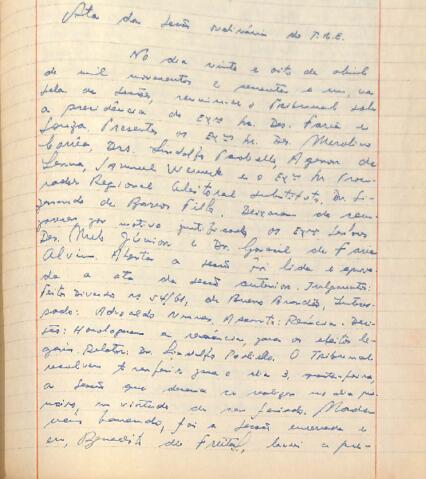 Ata da sessão ordinária do T.R.E.
No dia vinte e oito de abril
de mil novecentos e sessenta e um, na
sala de sessões, reuniu-se o Tribunal sob
a presidência do Exmo Sr. Des. Faria e
Souza. Presentes os Exmos Srs. Des. Merolino
Corrêa, Drs. Lindolfo Paoliello, Agenor de
Senna, Samuel Werneck e o Exmo Sr. Procu-
rador Regional Eleitoral Substituto, Dr. Si-
gismundo de Barros Filho. Deixaram de com-
parecer por motivo justificado os Exmos Senhores
Des. Melo Júnior e Dr. Gabriel de Faria
Alvim. Aberta a sessão foi lida e aprova-
da a ata da sessão anterior. Julgamento:
Feitos Diversos nº 54/61, de Bueno Brandão, Interes-
sado: Nunes, Assunto: Renúncia. Deci-
são: Homologaram a renúncia, para os efeitos le-
gais. Relator: Dr. Lindolfo Paoliello. O Tribunal
resolveu transferir para o dia 3, quarta-feira,
a sessão que deveria se realizar no dia pri-
meiro, em virtude de ser feriado. Nada
mais havendo, foi a sessão encerrada e
eu, Benedito de Freitas, lavrei a pre-